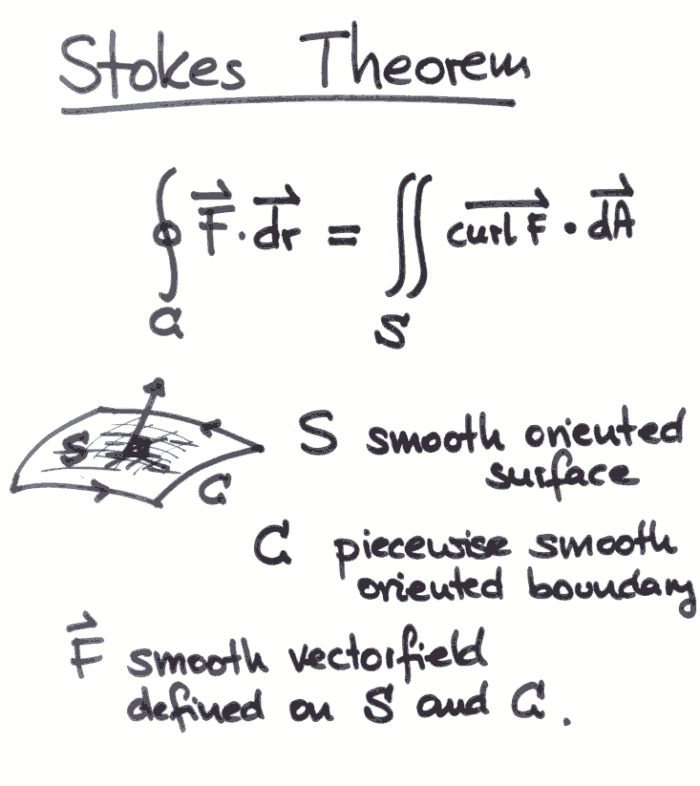 Stokes Theorem
∮ F⃗ · dr⃗ = ∬ curl F⃗ · dA⃗
C S
S C
S smooth oriented
surface
C piecewise smooth
oriented boundary
F⃗ smooth vectorfield
defined on S and C.